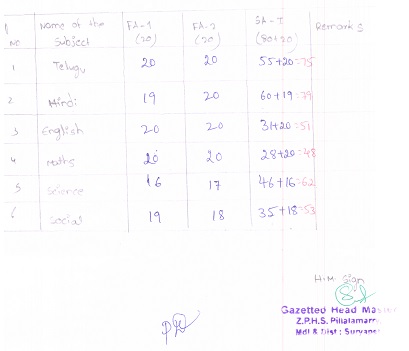 S NO Name of the Subject FA-1 (20) FA-2 (20) SA-I (80+20) Remarks
1 Telugu 20 20 55+20=75
2 Hindi 19 20 60+19=79
3 English 20 20 31+20=51
4 Maths 20 20 28+20=48
5 Science 16 17 46+16=62
6 Social 19 18 35+18=53
H.M. Sign
Gazetted Head
Z.P.H.S.
Mdl & Dist :